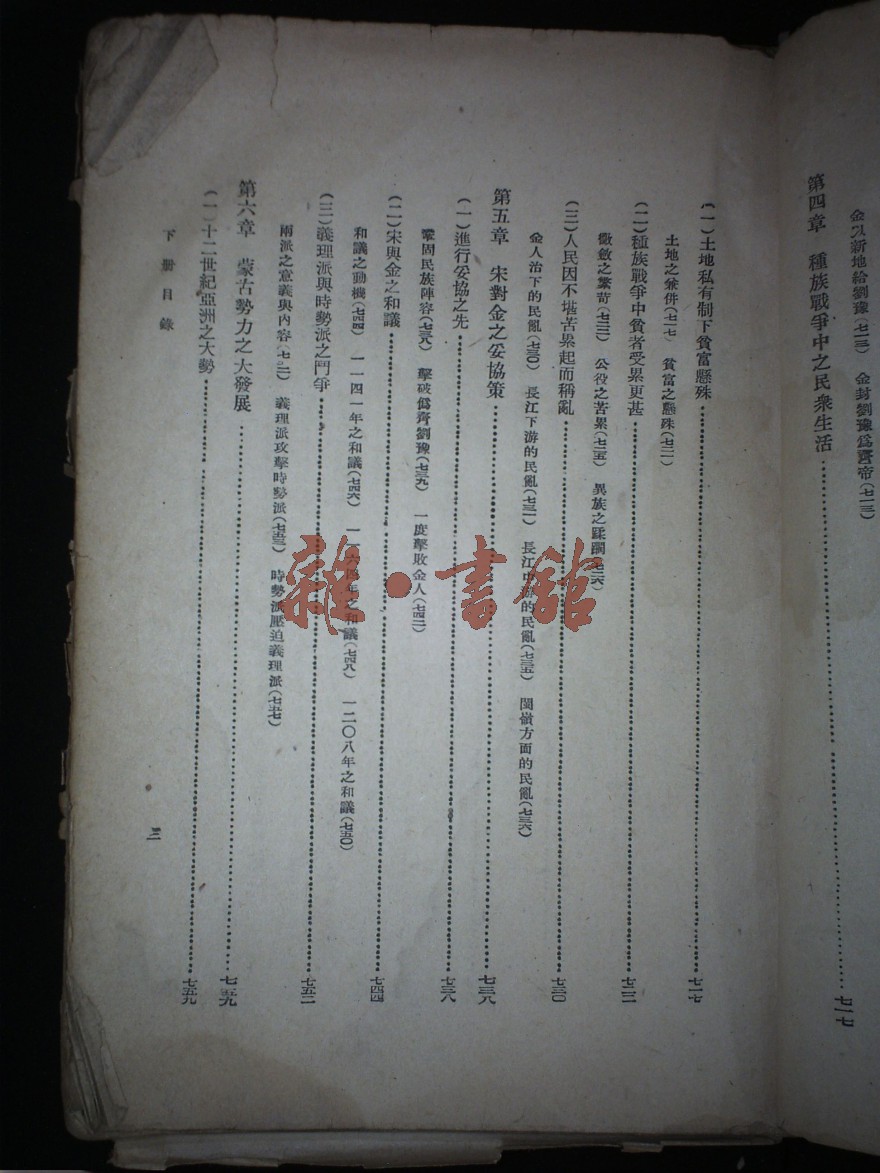 金以新地給劉豫(七一三) 金封劉豫爲齊帝(七一三)
第四章 種族戰爭中之民衆生活……七一七
(一)土地私有制下貧富懸殊……七一七
土地之兼併(七一七) 貧富之懸殊(七二一)
(二)種族戰爭中貧者受累更甚……七二二
徵斂之繁苛(七二二) 公役之苦累(七二五) 異族之蹂躪(七二六)
(三)人民因不堪苦累起而稱亂……七三〇
金人治下的民亂(七三〇) 長江下游的民亂(七三一) 長江中游的民亂(七三五) 閩嶺方面的民亂(七三六)
第五章 宋對金之妥協策……七三八
(一)進行妥協之先……七三八
鞏固民族陣容(七三八) 擊破僞齊劉豫(七三九) 一度擊敗金人(七四二)
(二)宋與金之和議……七四四
和議之動機(七四四) 一一四一年之和議(七四六) 一一六四年之和議(七四八) 一二〇八年之和議(七五〇)
(三)義理派與時勢派之鬥爭……七五二
兩派之意義與內容(七五二) 義理派攻擊時勢派(七五三) 時勢派壓迫義理派(七五七)
第六章 蒙古勢力之大發展……七五九
(一)十二世紀亞洲之大勢……七五九
下冊目錄
三
雜·書館